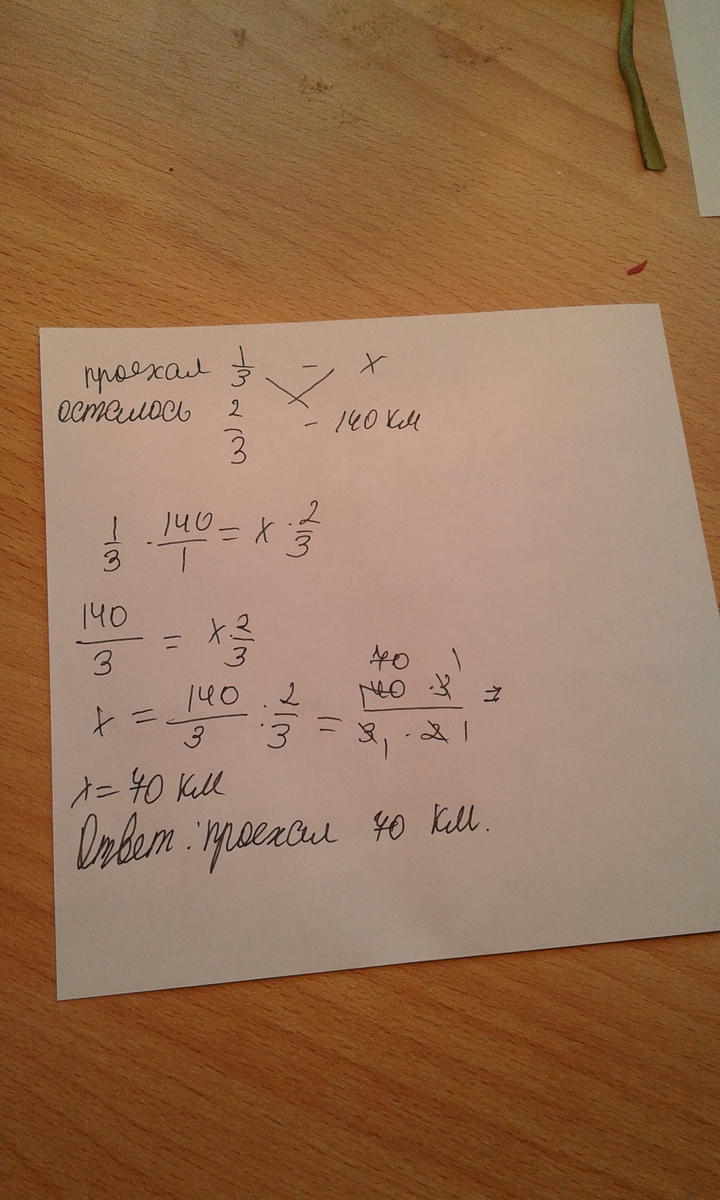 проехал 1/3 - x
осталось 2/3 - 140 км
1/3 · 140/1 = x · 2/3
140/3 = x · 2/3
x = 140/3 : 2/3 = 140 · 3 / 3 · 2 =
70 1
1 1
x = 70 км
Ответ: проехал 70 км.